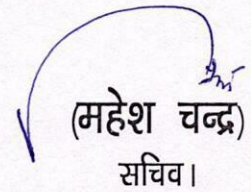 (महेश चन्द्र)
सचिव।